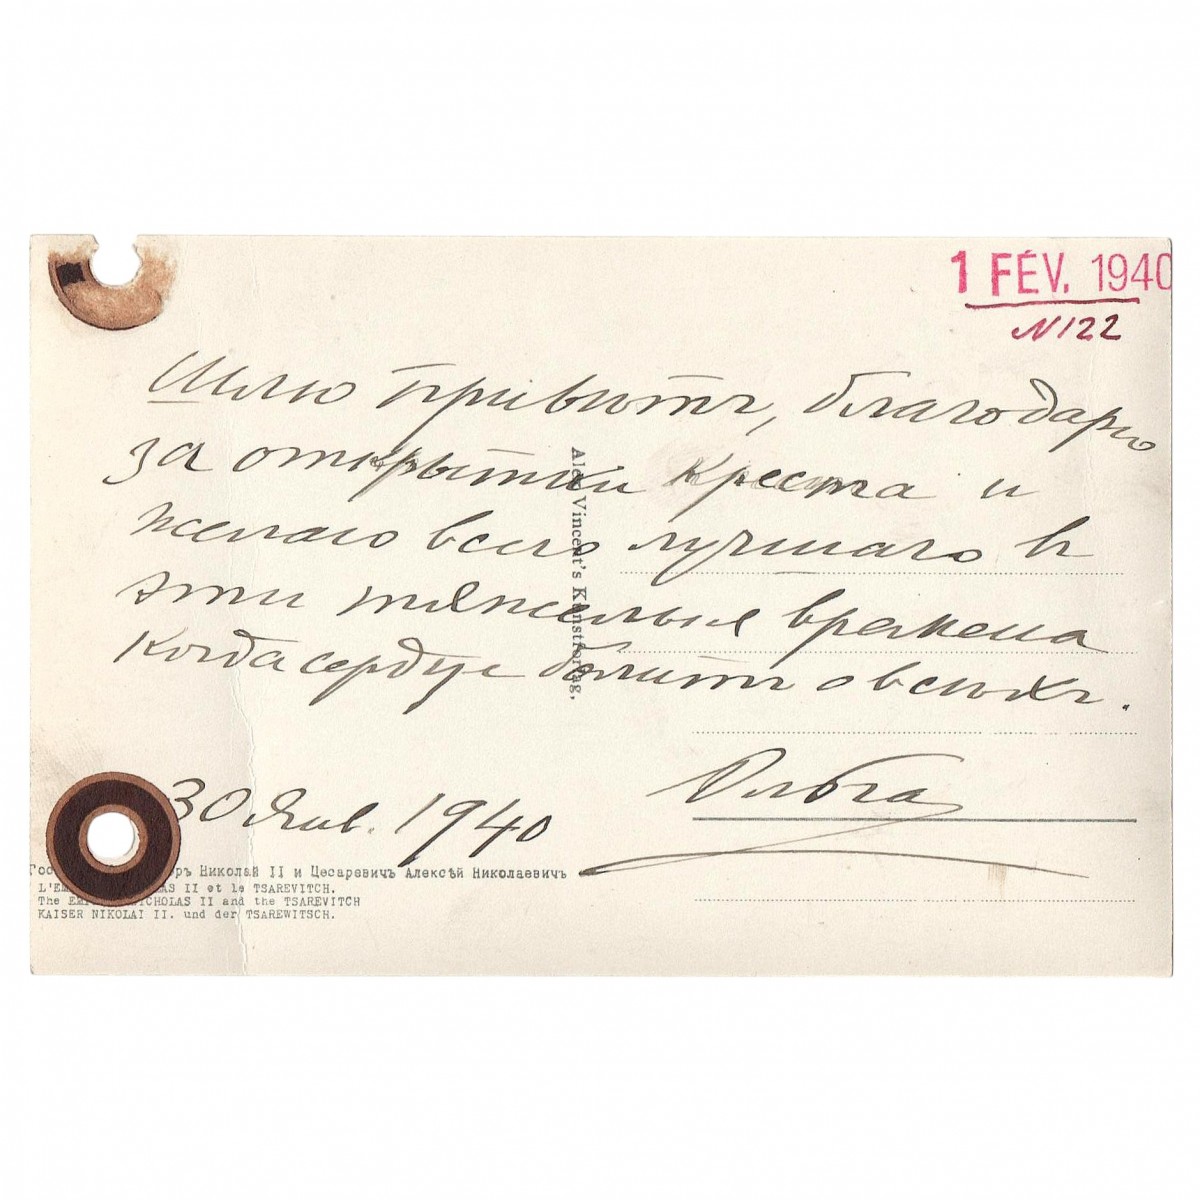 1 FÉV. 1940
N122
Шлю привѣтъ, благодарю
за открытки креста и
желаю всего лучшаго въ
эти тяжелыя времена
когда сердце болитъ о всѣхъ.
Ольга
30 Янв. 1940
Alex Vincent's Kunstverlag,
Николай II и Цесаревичъ Алексѣй Николаевичъ
II et le TSAREVITCH.
The NICHOLAS II and the TSAREVITCH
KAISER NIKOLAI II. und der TSAREWITSCH.